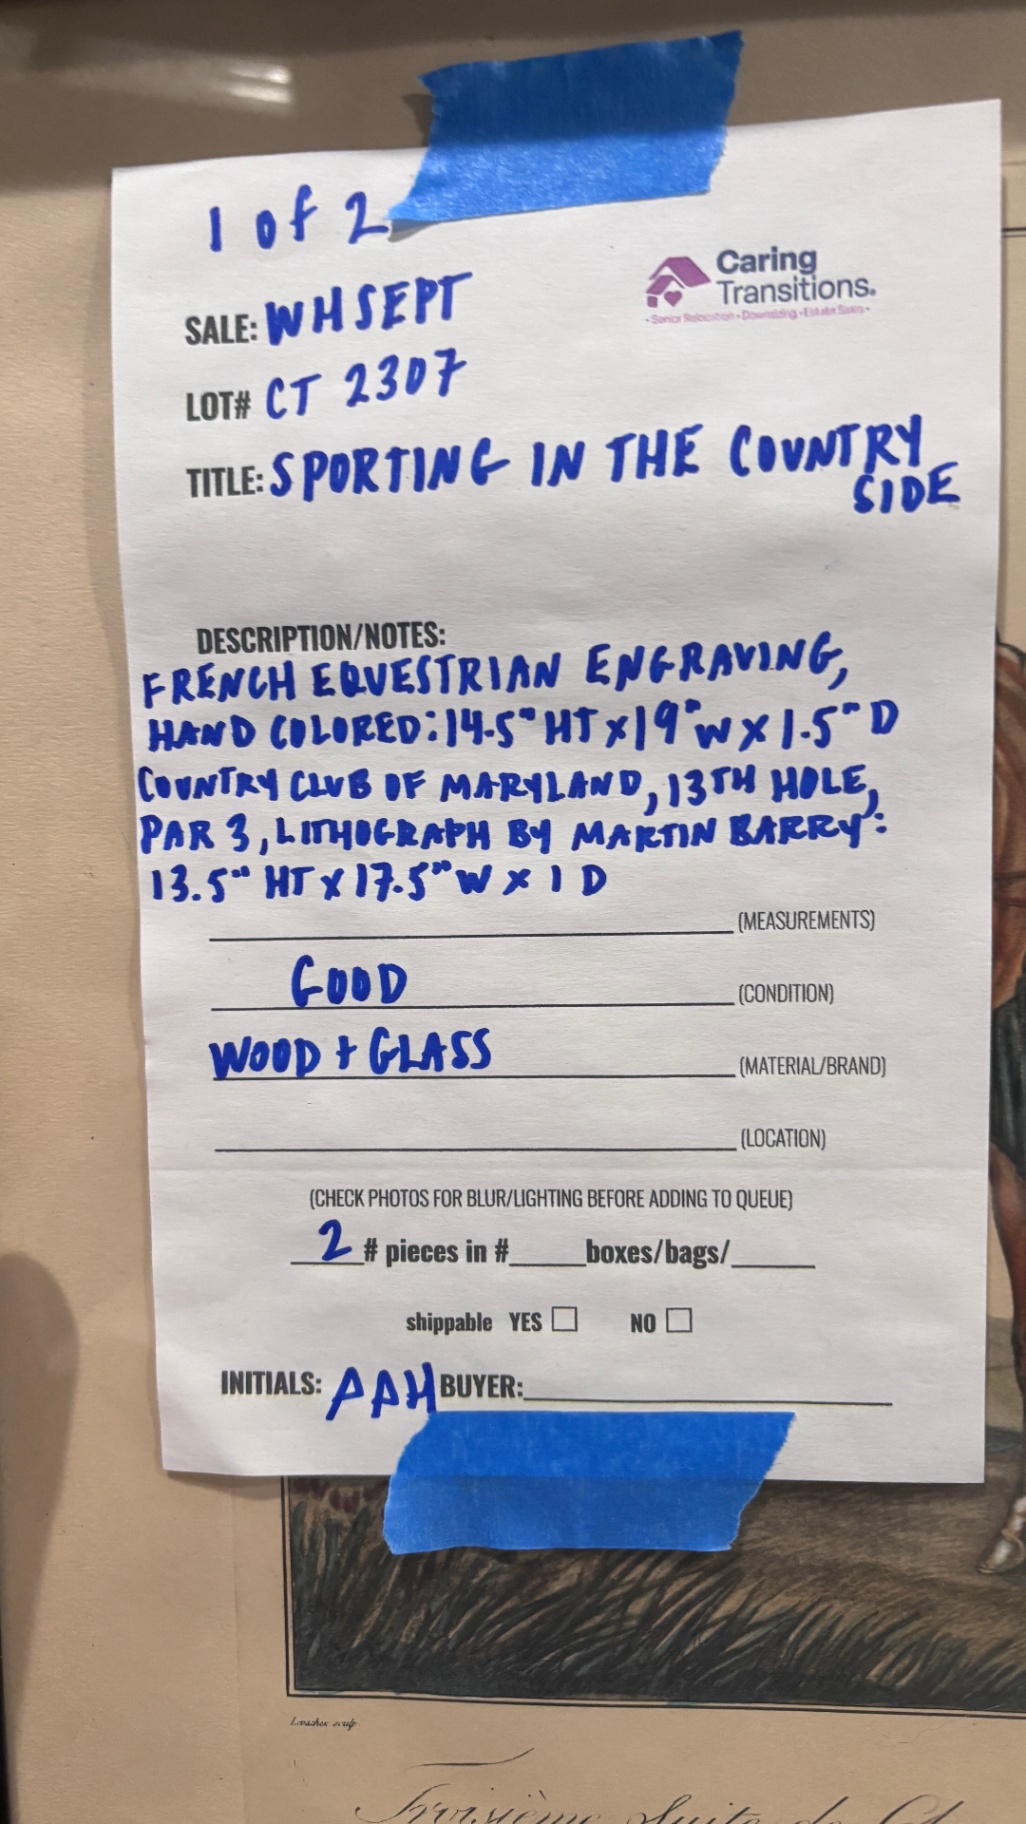 1 of 2
Caring
Transitions.
• Senior Relocation • Downsizing • Estate Sales •
SALE: WHSEPT
LOT# CT 2307
TITLE: SPORTING IN THE COUNTRY
SIDE
DESCRIPTION/NOTES:
FRENCH EQUESTRIAN ENGRAVING,
HAND COLORED: 14.5" HT x 19" W x 1.5" D
COUNTRY CLUB OF MARYLAND, 13TH HOLE,
PAR 3, LITHOGRAPH BY MARTIN BARRY:
13.5" HT x 17.5" W x 1 D
(MEASUREMENTS)
GOOD (CONDITION)
WOOD + GLASS (MATERIAL/BRAND)
(LOCATION)
(CHECK PHOTOS FOR BLUR/LIGHTING BEFORE ADDING TO QUEUE)
2 # pieces in # boxes/bags/
shippable YES NO
INITIALS: AAH BUYER:
sculp
Troisième Suite de